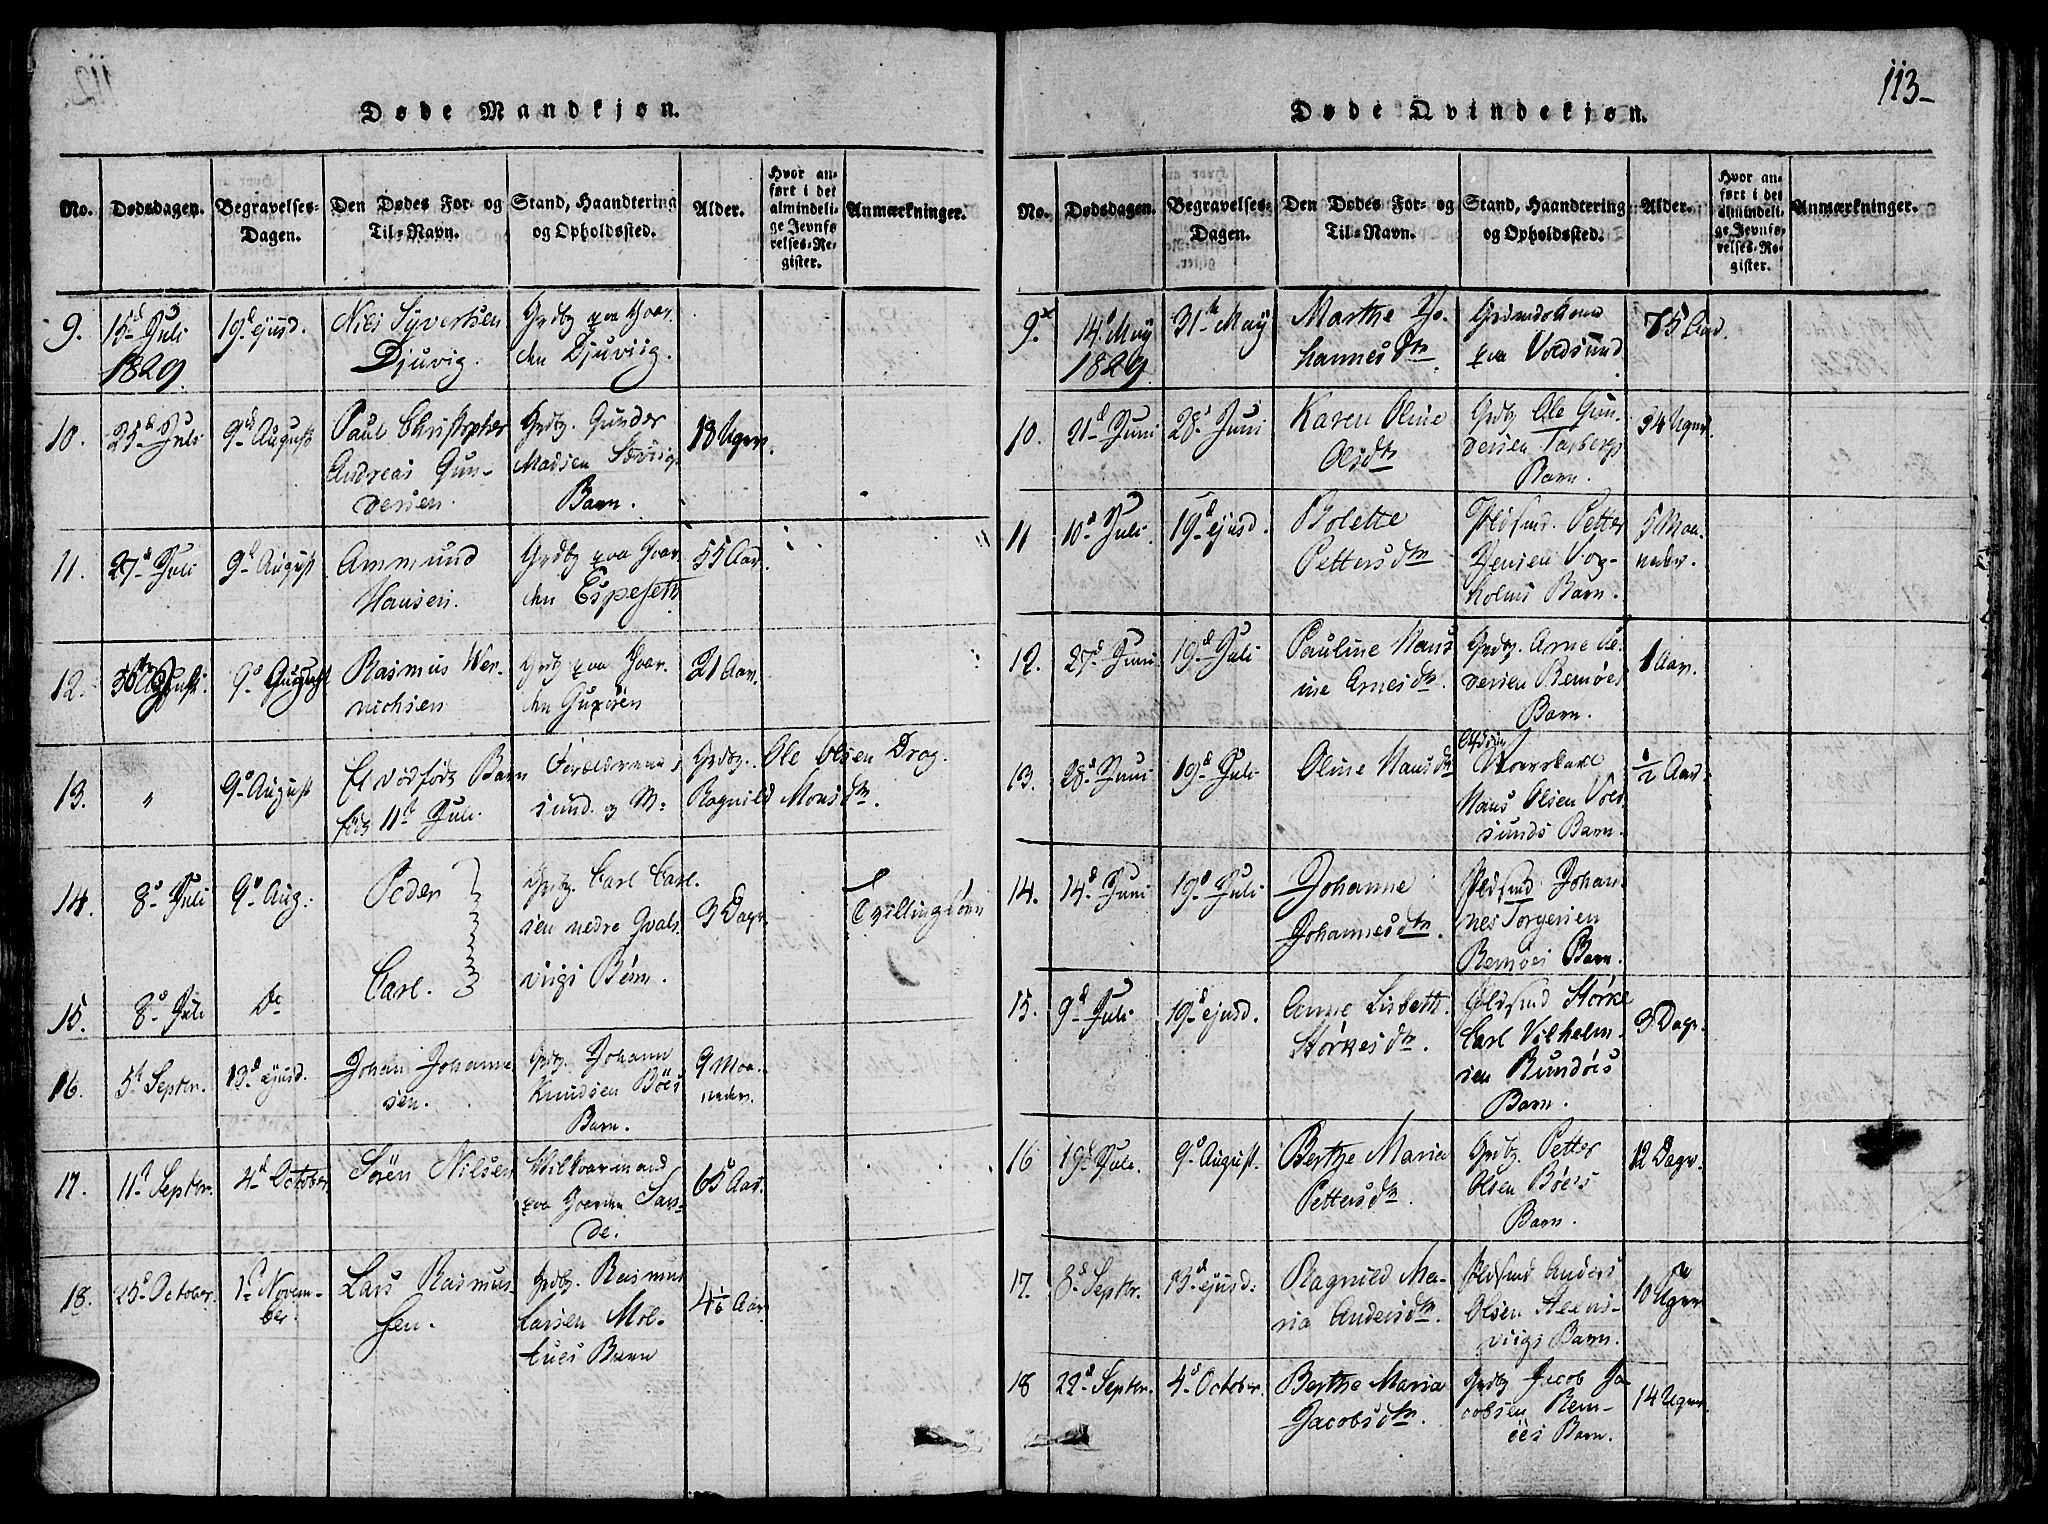 113-
Døde Mandkjøn.
No.
Dødsdagen.
Begravelses-
Dagen.
Den Dødes For- og
Til-Navn.
Stand, Haandtering
og Opholdssted.
Alder.
Hvor an-
ført i det
almindeli-
ge Jevnfø-
relses-Re-
gister.
Anmærkninger.
9.
15d Juli
1829.
19d ejusd.
Nils Syvertsen
Djuvig.
Grdbr paa Gaar-
den Djuviig.
10.
25d Juli
9d August
Paul Christopher
Andreas Gun-
dersen.
Grdbr. Gunder
Madsen
Barn.
18 Uger.
11.
27d Juli
9d August
Ammund
Hansen.
Grdbr paa Gaar-
den Espeseth
55 Aar.
12.
August.
9d August
Rasmus Wer-
nichsen
Grdbr paa Gaar-
den
21 Aar.
13.
"
9d August
Et Barn
født 11te Juli.
Forældrene
og
Grdbr. Ole Olsen Drag.
Ragnild Monsdtr.
14.
8d Juli
9d Aug:
Peder
Grdbr. Carl Carl-
sen nedre Qvals-
viigs Børn.
3 Dage.
Tvillingbørn
15.
8d Juli
Do
Carl.
16.
5t Septbr.
13d ejusd.
Johan Johanne-
sen.
Grdbr. Johann
Knudsen Bøes
Barn.
9 Maa-
neder.
17.
11t Septbr.
4d October
Sørn Nilsen
paa Gaarden San-
de.
65 Aar.
18.
25d October.
1t Novem-
ber.
Lars Rasmus-
sen.
Grdbr. Rasmus
Larsen Mol-
tues Barn
4 1/6 Aar
Døde Qvindekjøn.
No.
Dødsdagen.
Begravelses-
Dagen.
Den Dødes For- og
Til-Navn.
Stand, Haandtering
og Opholdssted.
Alder.
Hvor an-
ført i det
almindeli-
ge Jevnfø-
relses-Re-
gister.
Anmærkninger.
9.
14d May
1829
31te May
Marthe Jo-
hannesdtr.
paa Voldsund.
75 Aar.
10.
21d Juni
28d Juni
Karen Oline
Olsdtr
Grdbr Ole Gun-
dersen Tarbergs
Barn.
34 Uger.
11
10d Juli.
19d ejusd.
Bolette
Pettersdtr
Petter
Jensen Vog-
holms Barn.
5 Maa-
neder.
12.
27d Juni
19d Juli
Pauline Hans-
ine Arnesdtr.
Grdbr. Arne Pe-
dersen Remøes
Barn.
1 Aar.
13.
28d Juni
19d Juli
Oline Hansdtr
Hans Olsen Vold-
sunds Barn.
1/2 Aar
14.
14d Juni
19d Juli
Johanne
Johannesdtr.
Johan-
nes Torgersen
Remøes Barn.
15.
9d Juli
19d ejusd.
Anne Lisbeth
Størkesdtr.
Størke
Carl Vilhelm-
sen Rundøes
Barn.
3 Dage.
16
19d Juli.
9d August.
Berthe Maria
Pettersdtr.
Grdbr. Petter
Olsen Bøes
Barn.
12 Dage.
17.
8d Septbr.
13d ejusd:
Ragnild Ma-
ria Andersdtr.
Anders
Olsen Steens-
viigs Barn.
10 Uger
18
22d Septbr.
4d October.
Berthe Maria
Jacobsdtr.
Grdbr Jacob Ja-
cobsen Rem-
øes Barn.
14 Uger